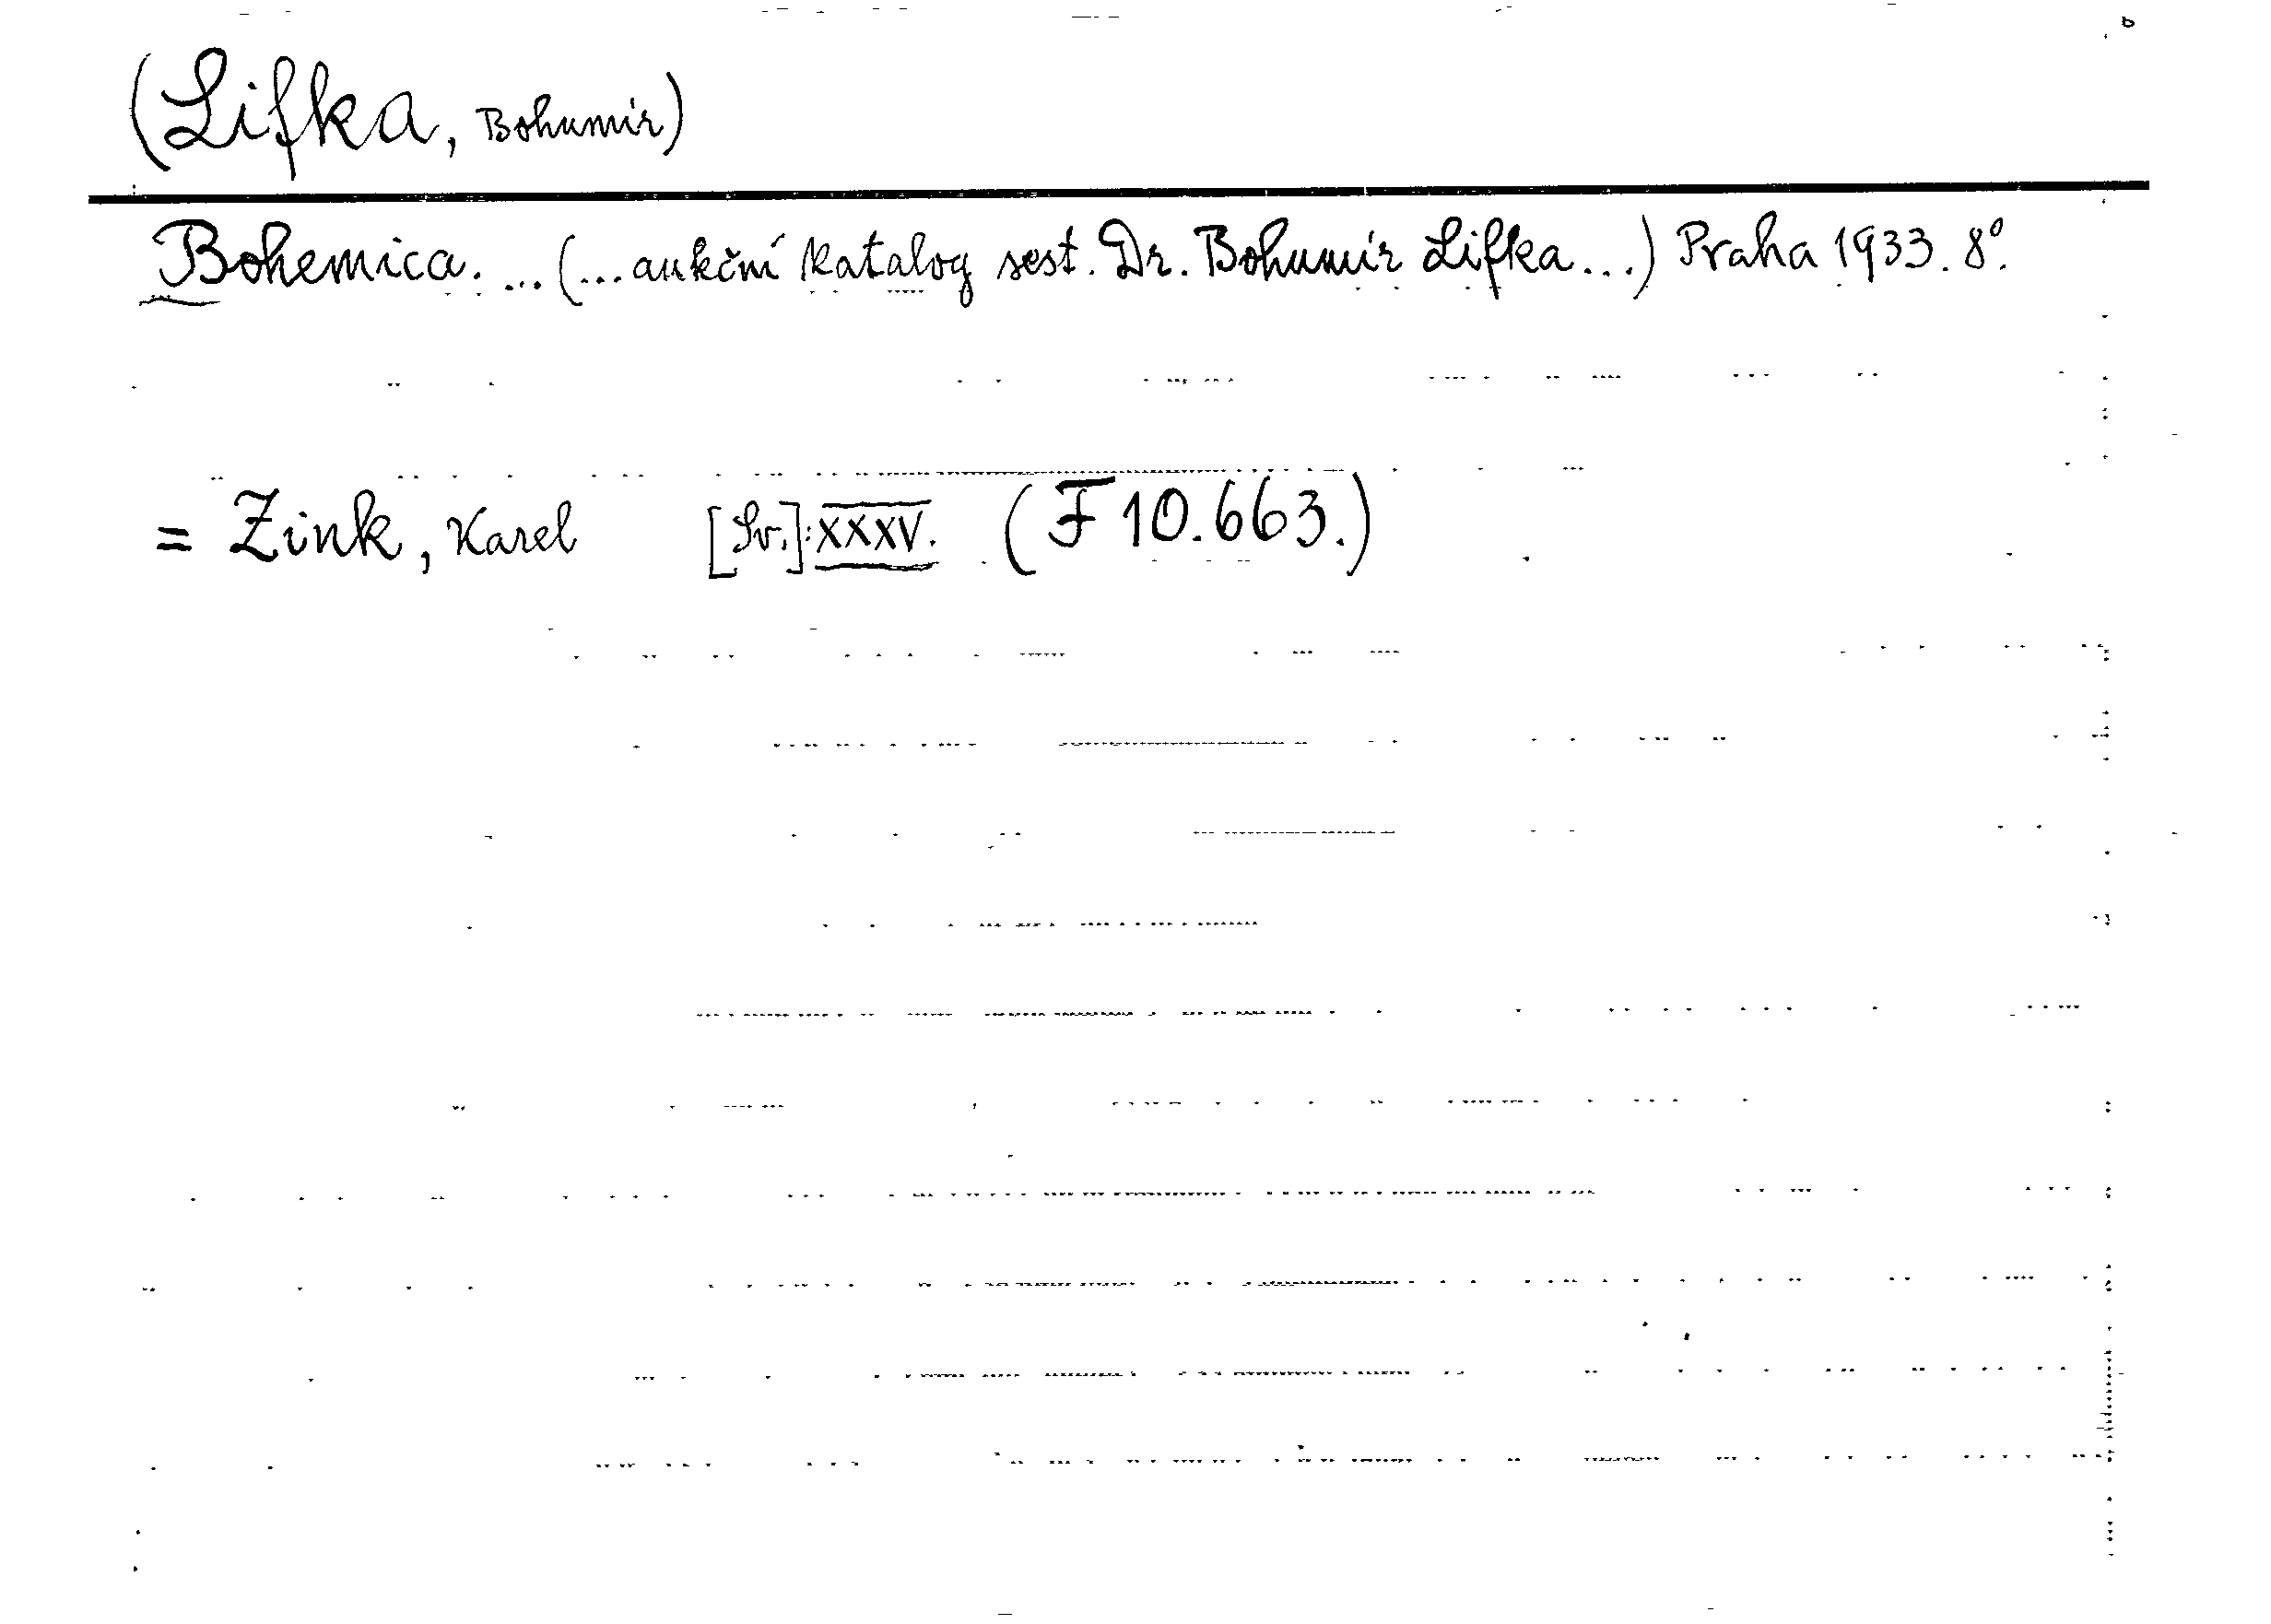 (Lifka, Bohumír)
Bohemica. ... (... aukční katalog sest. Dr. Bohumír Lifka ...) Praha 1933. 8°.
= Zink, Karel [Sv.]: XXXV. (F 10.663.)